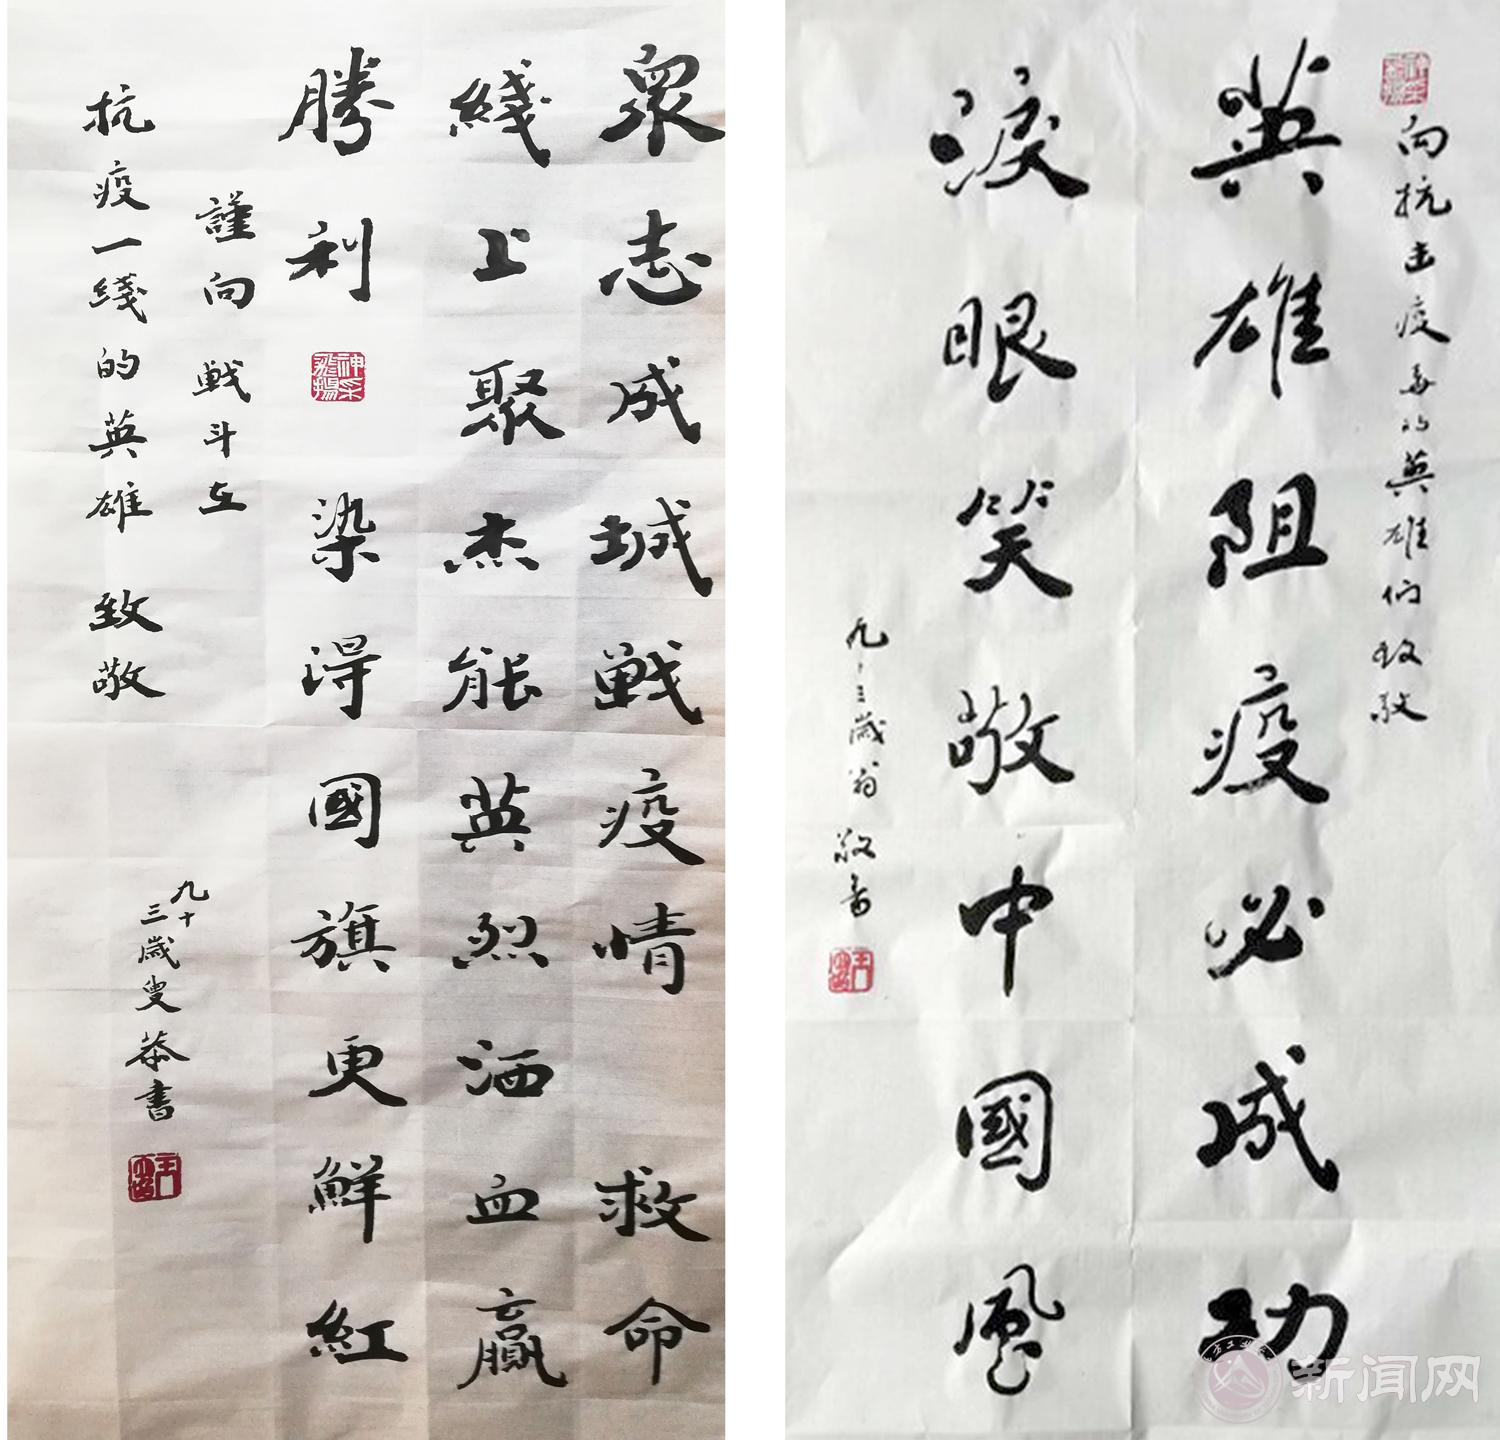 眾志成城戦疫情 救命
綫上聚杰能英烈洒血贏
勝利
神采飛揚
染得國旗更鮮紅
謹向 戦斗在
抗疫一綫的英雄 致敬
九十
三歲叟恭書
神采飛揚
向抗击疫毒的英雄们致敬
英雄阻疫必成功
淚眼笑敬中國風
九十三歲翁 敬書
新闻网